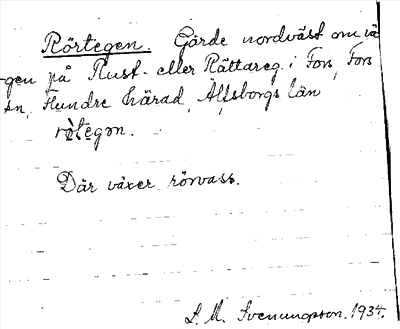 Rörtegen. Gärde nordväst om vä
gen på Rust- eller Rättareg. i Fors, Fors
sn, Flundre härad, Älfsborgs län
Där växer rörvass.
S. M. Svenungsson. 1934.